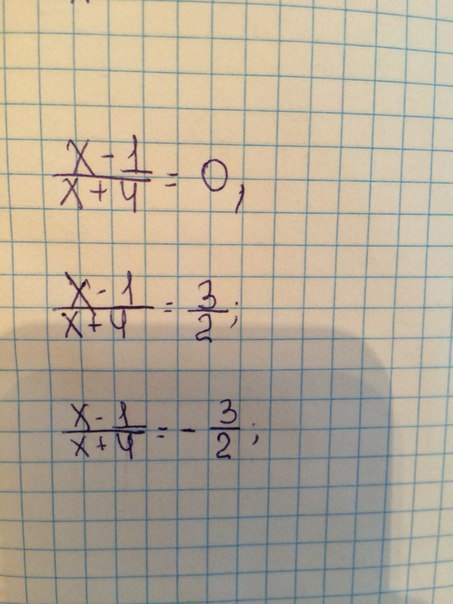 x - 1 / x + 4 = 0,
x - 1 / x + 4 = 3 / 2 ;
x - 1 / x + 4 = - 3 / 2 ;